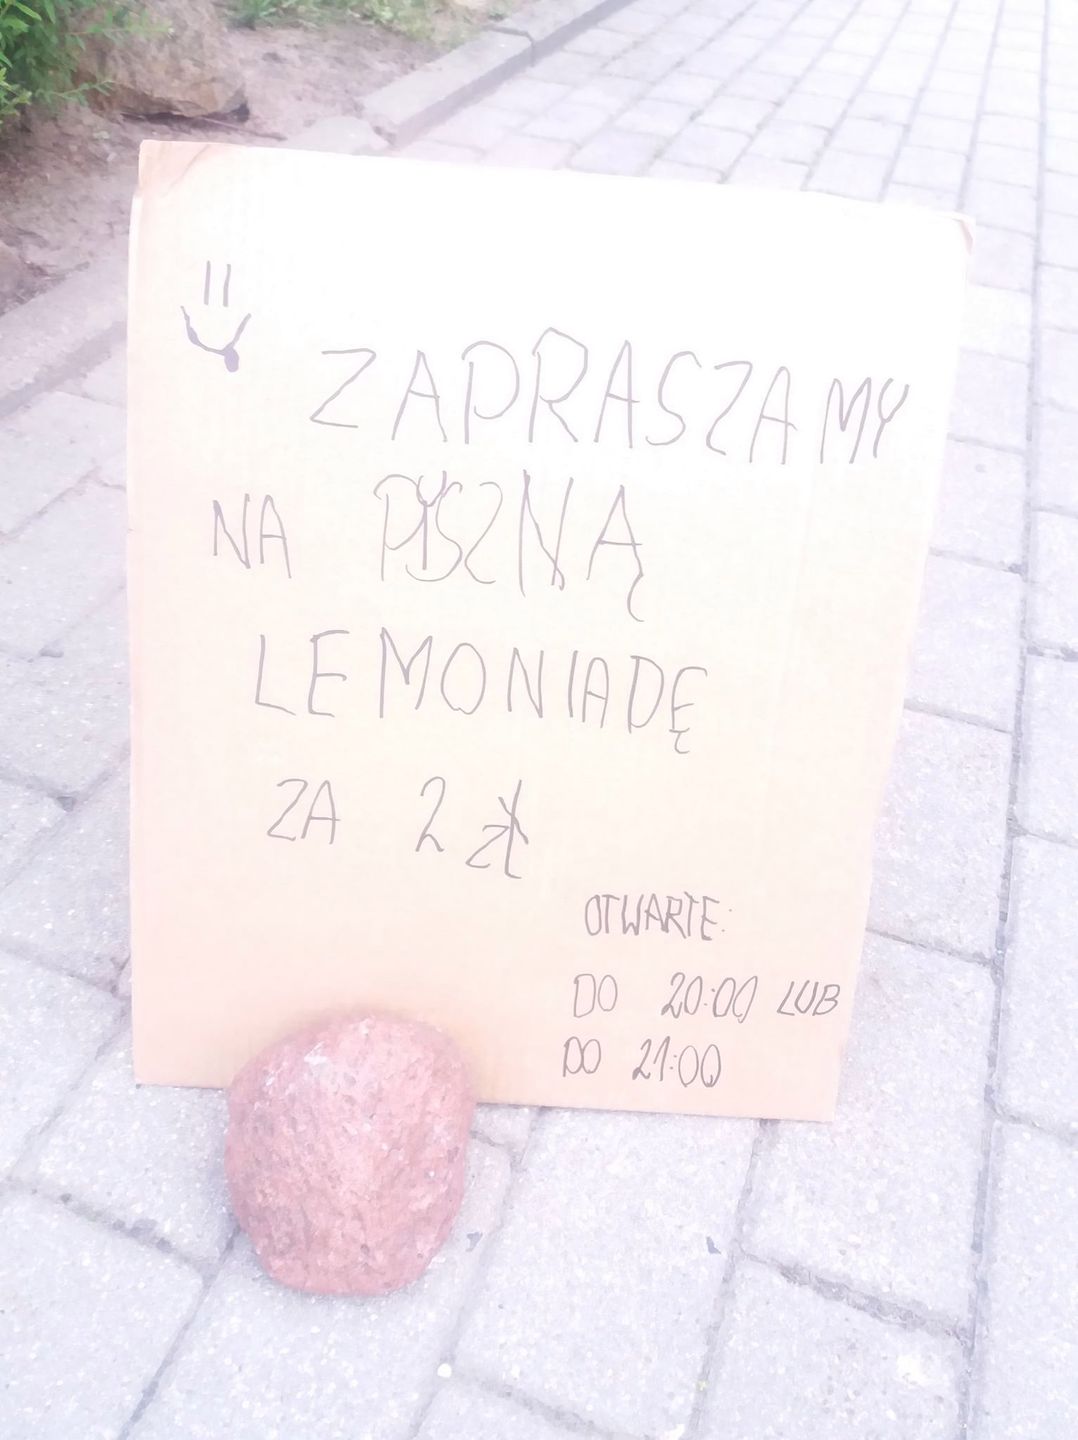 ZAPRASZAMY
NA PYSZNĄ
LEMONIADĘ
ZA 2 zł
OTWARTE:
DO 20:00 LUB
DO 21:00